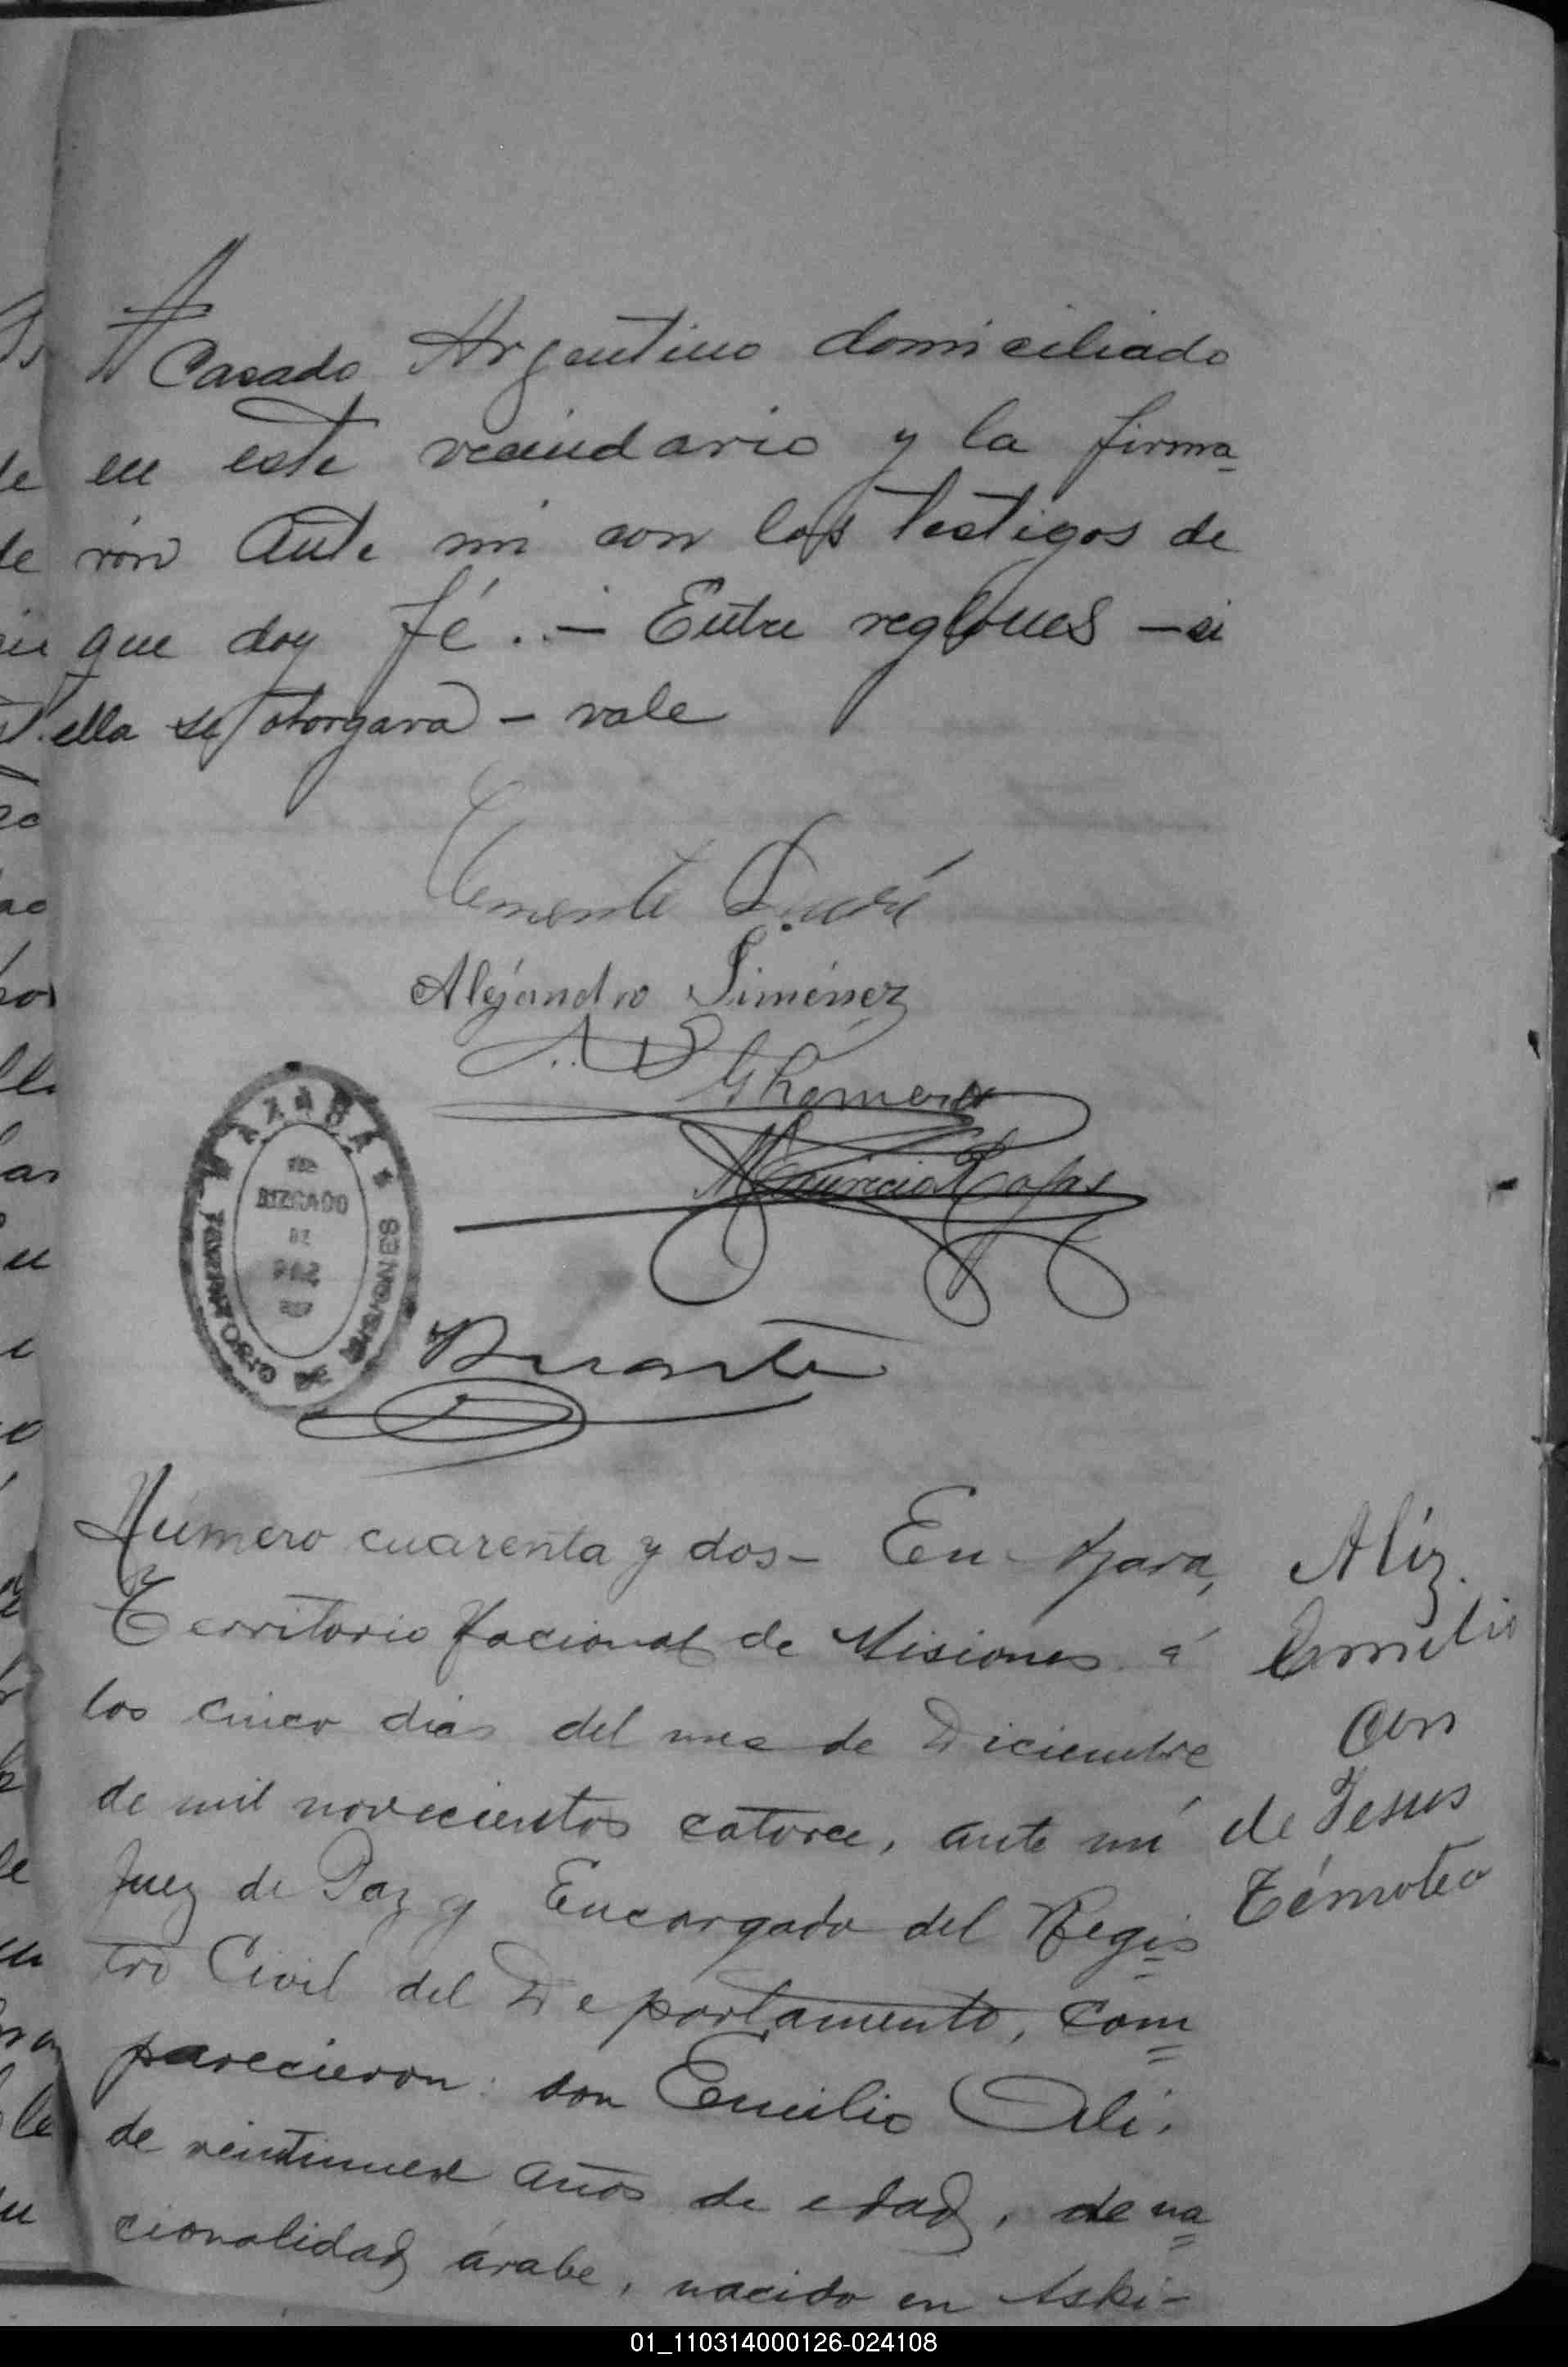 Casado Argentino domiciliado
en este vecindario y la firma-
ron Ante mi con los testigos de
que doy fé.. — Entre reglones — si
ella se otorgara — vale
Clemente
Alejandro Jiménez
G Romero
Mauricio Rojas
AZARA
JUZGADO
DE
PAZ
TERRITORIO DE MISIONES
Duarte
Número cuarenta y dos - En Azara,
Territorio Nacional de Misiones á
los cinco dias del mes de Diciembre
de mil novecientos catorce, ante mí
Juez de Paz y Encargado del Regis
tro Civil del Departamento, com
parecieron: don Emilio Ali,
de veintinueve años de edad, de na
cionalidad árabe, nacido en Aski-
Aliz.
Emilio
con
de Jesus
Témotea
01_110314000126-024108